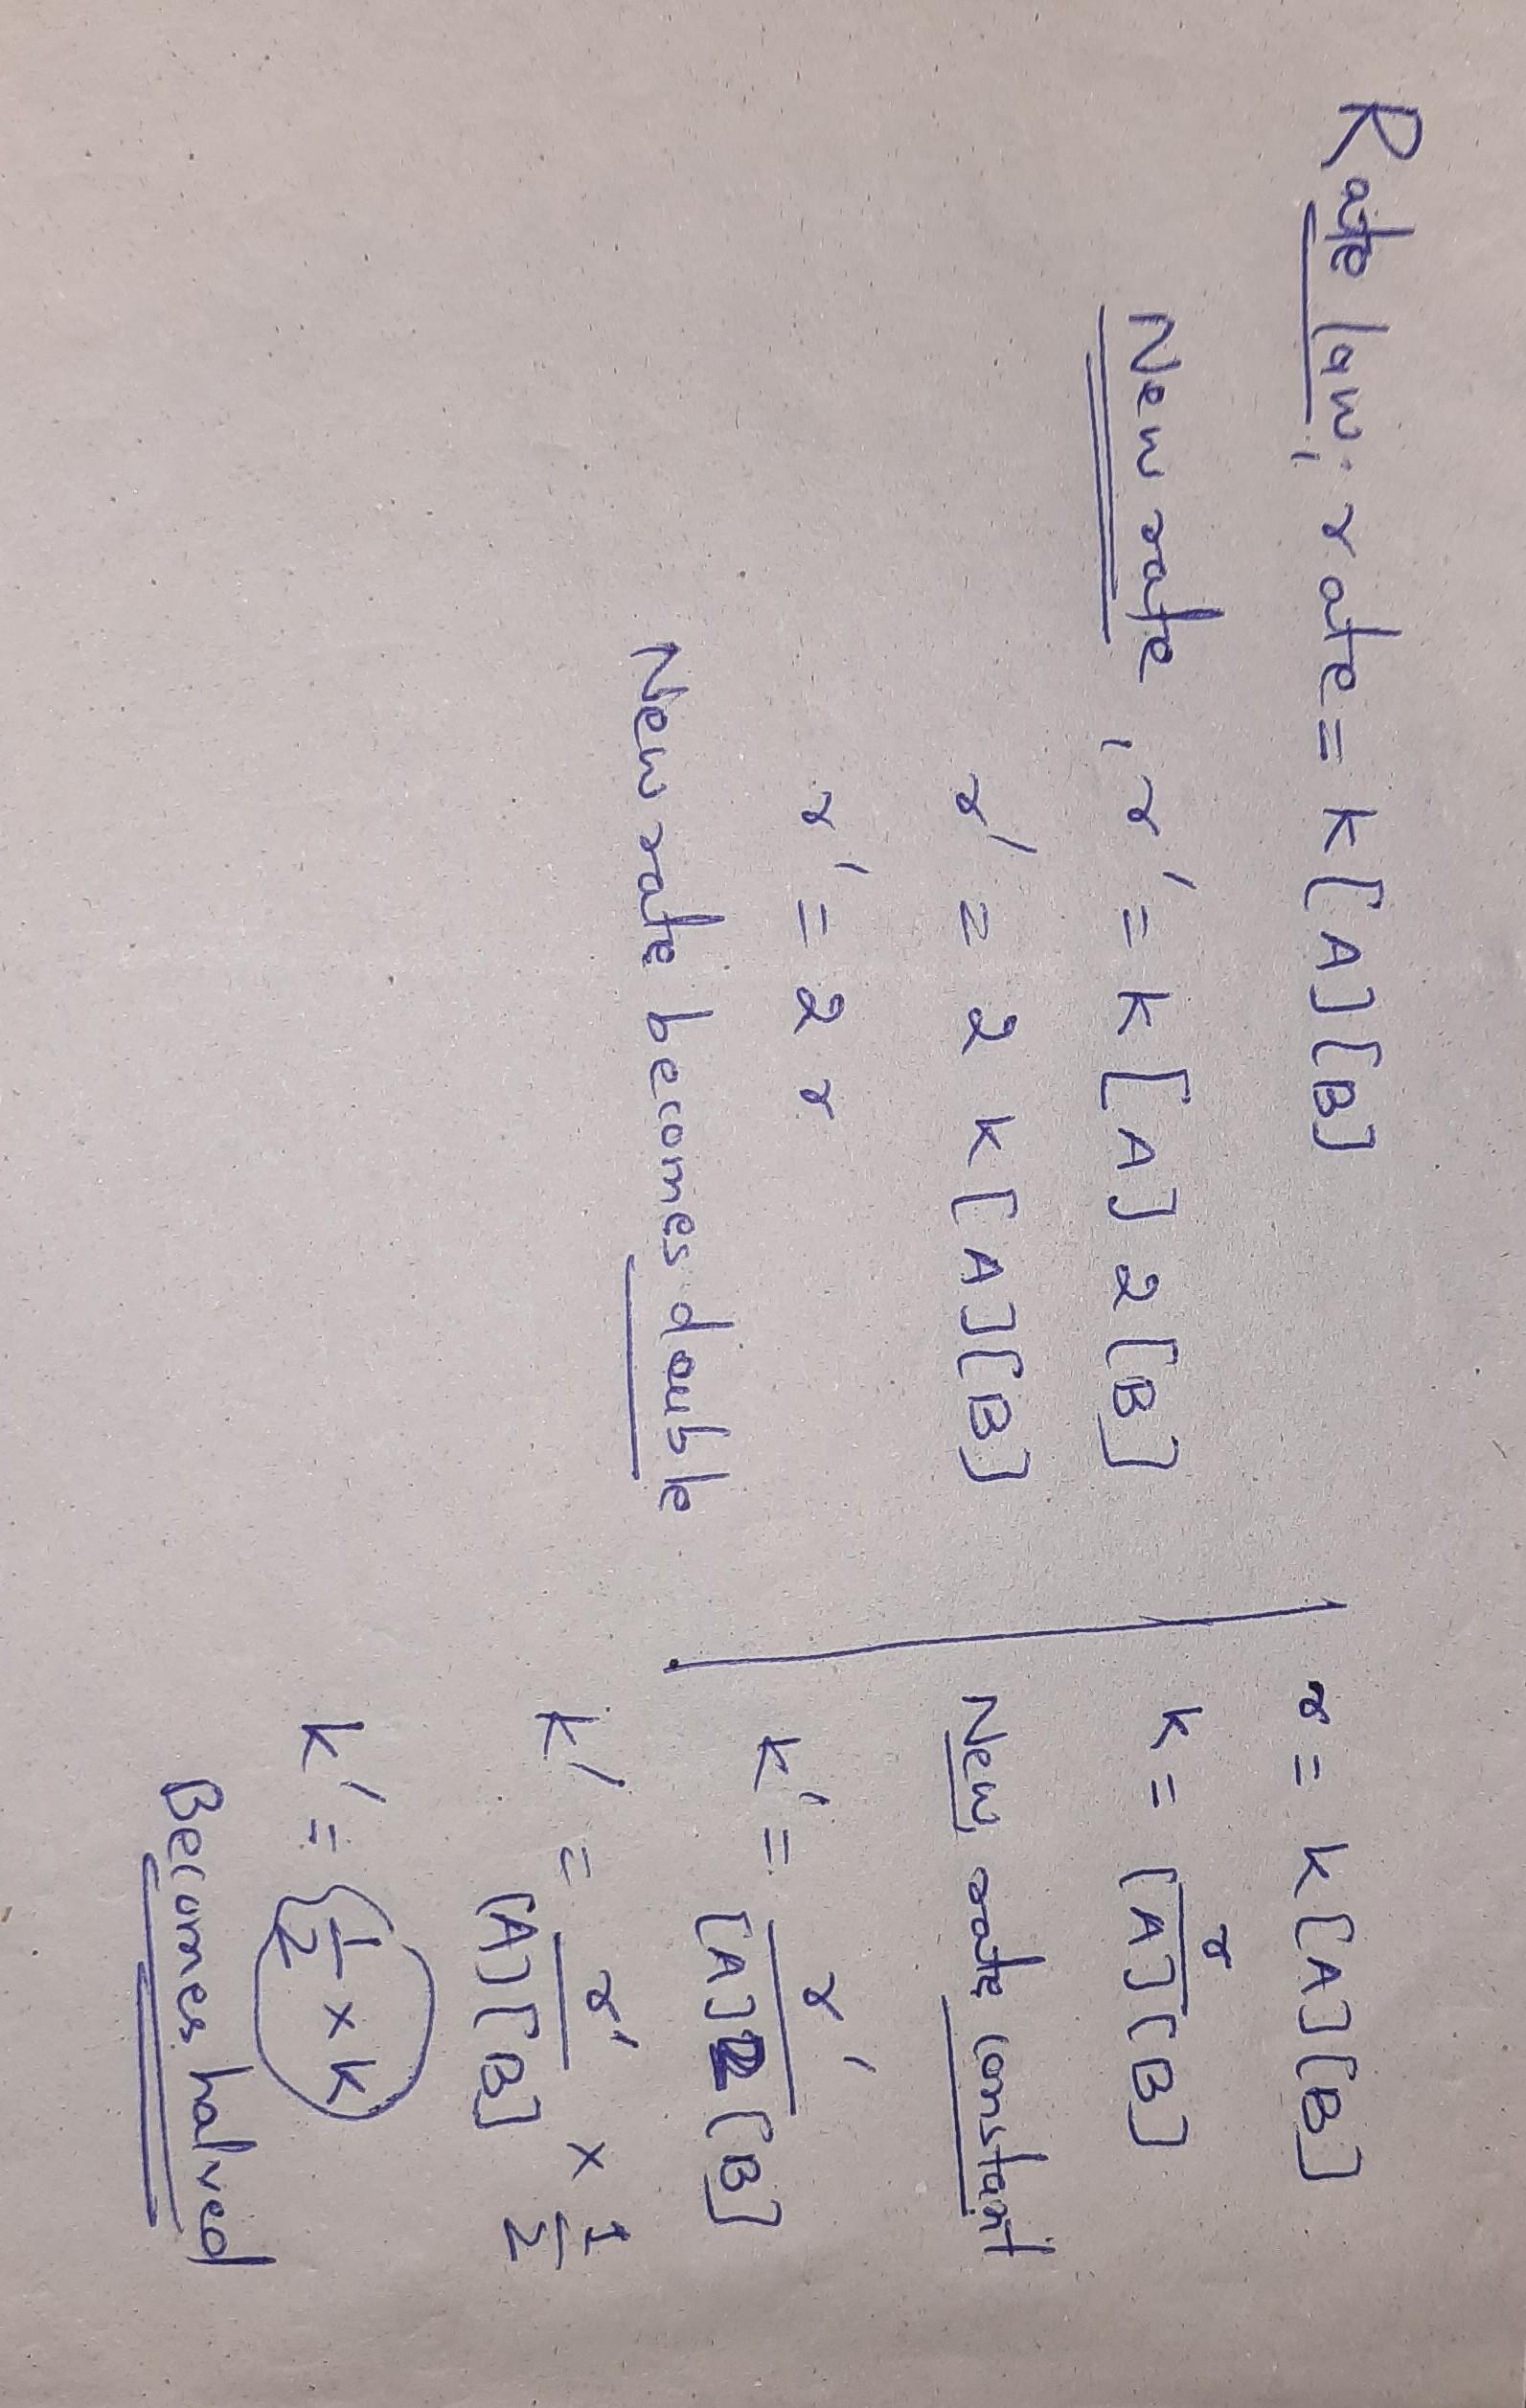 Rate law; rate = k[A][B]
New rate, r' = k[A] 2[B]
r' = 2 k[A][B]
r' = 2 r
New rate becomes double
r = k[A][B]
k = r/[A][B]
New rate constant
k' = r'/[A]2[B]
k' = r'/[A][B] × 1/2
k' = 1/2 × k
Becomes halved